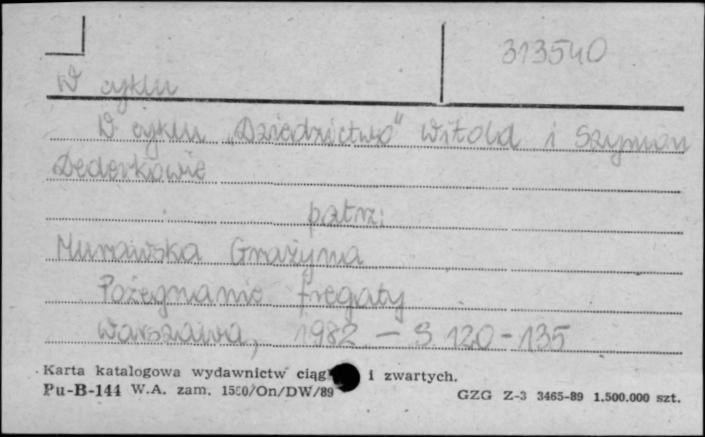 313540
W cyklu
W cyklu „Dziedzictwo" Witold i Szymon
Dederkowie
patrz:
Murawska Grażyna
Pożegnanie fregaty
Warszawa, 1982 – S 120-135
Karta katalogowa wydawnictw ciąg i zwartych.
Pu-B-144 W.A. zam. 1550/On/DW/89
GZG Z-3 3465-89 1.500.000 szt.